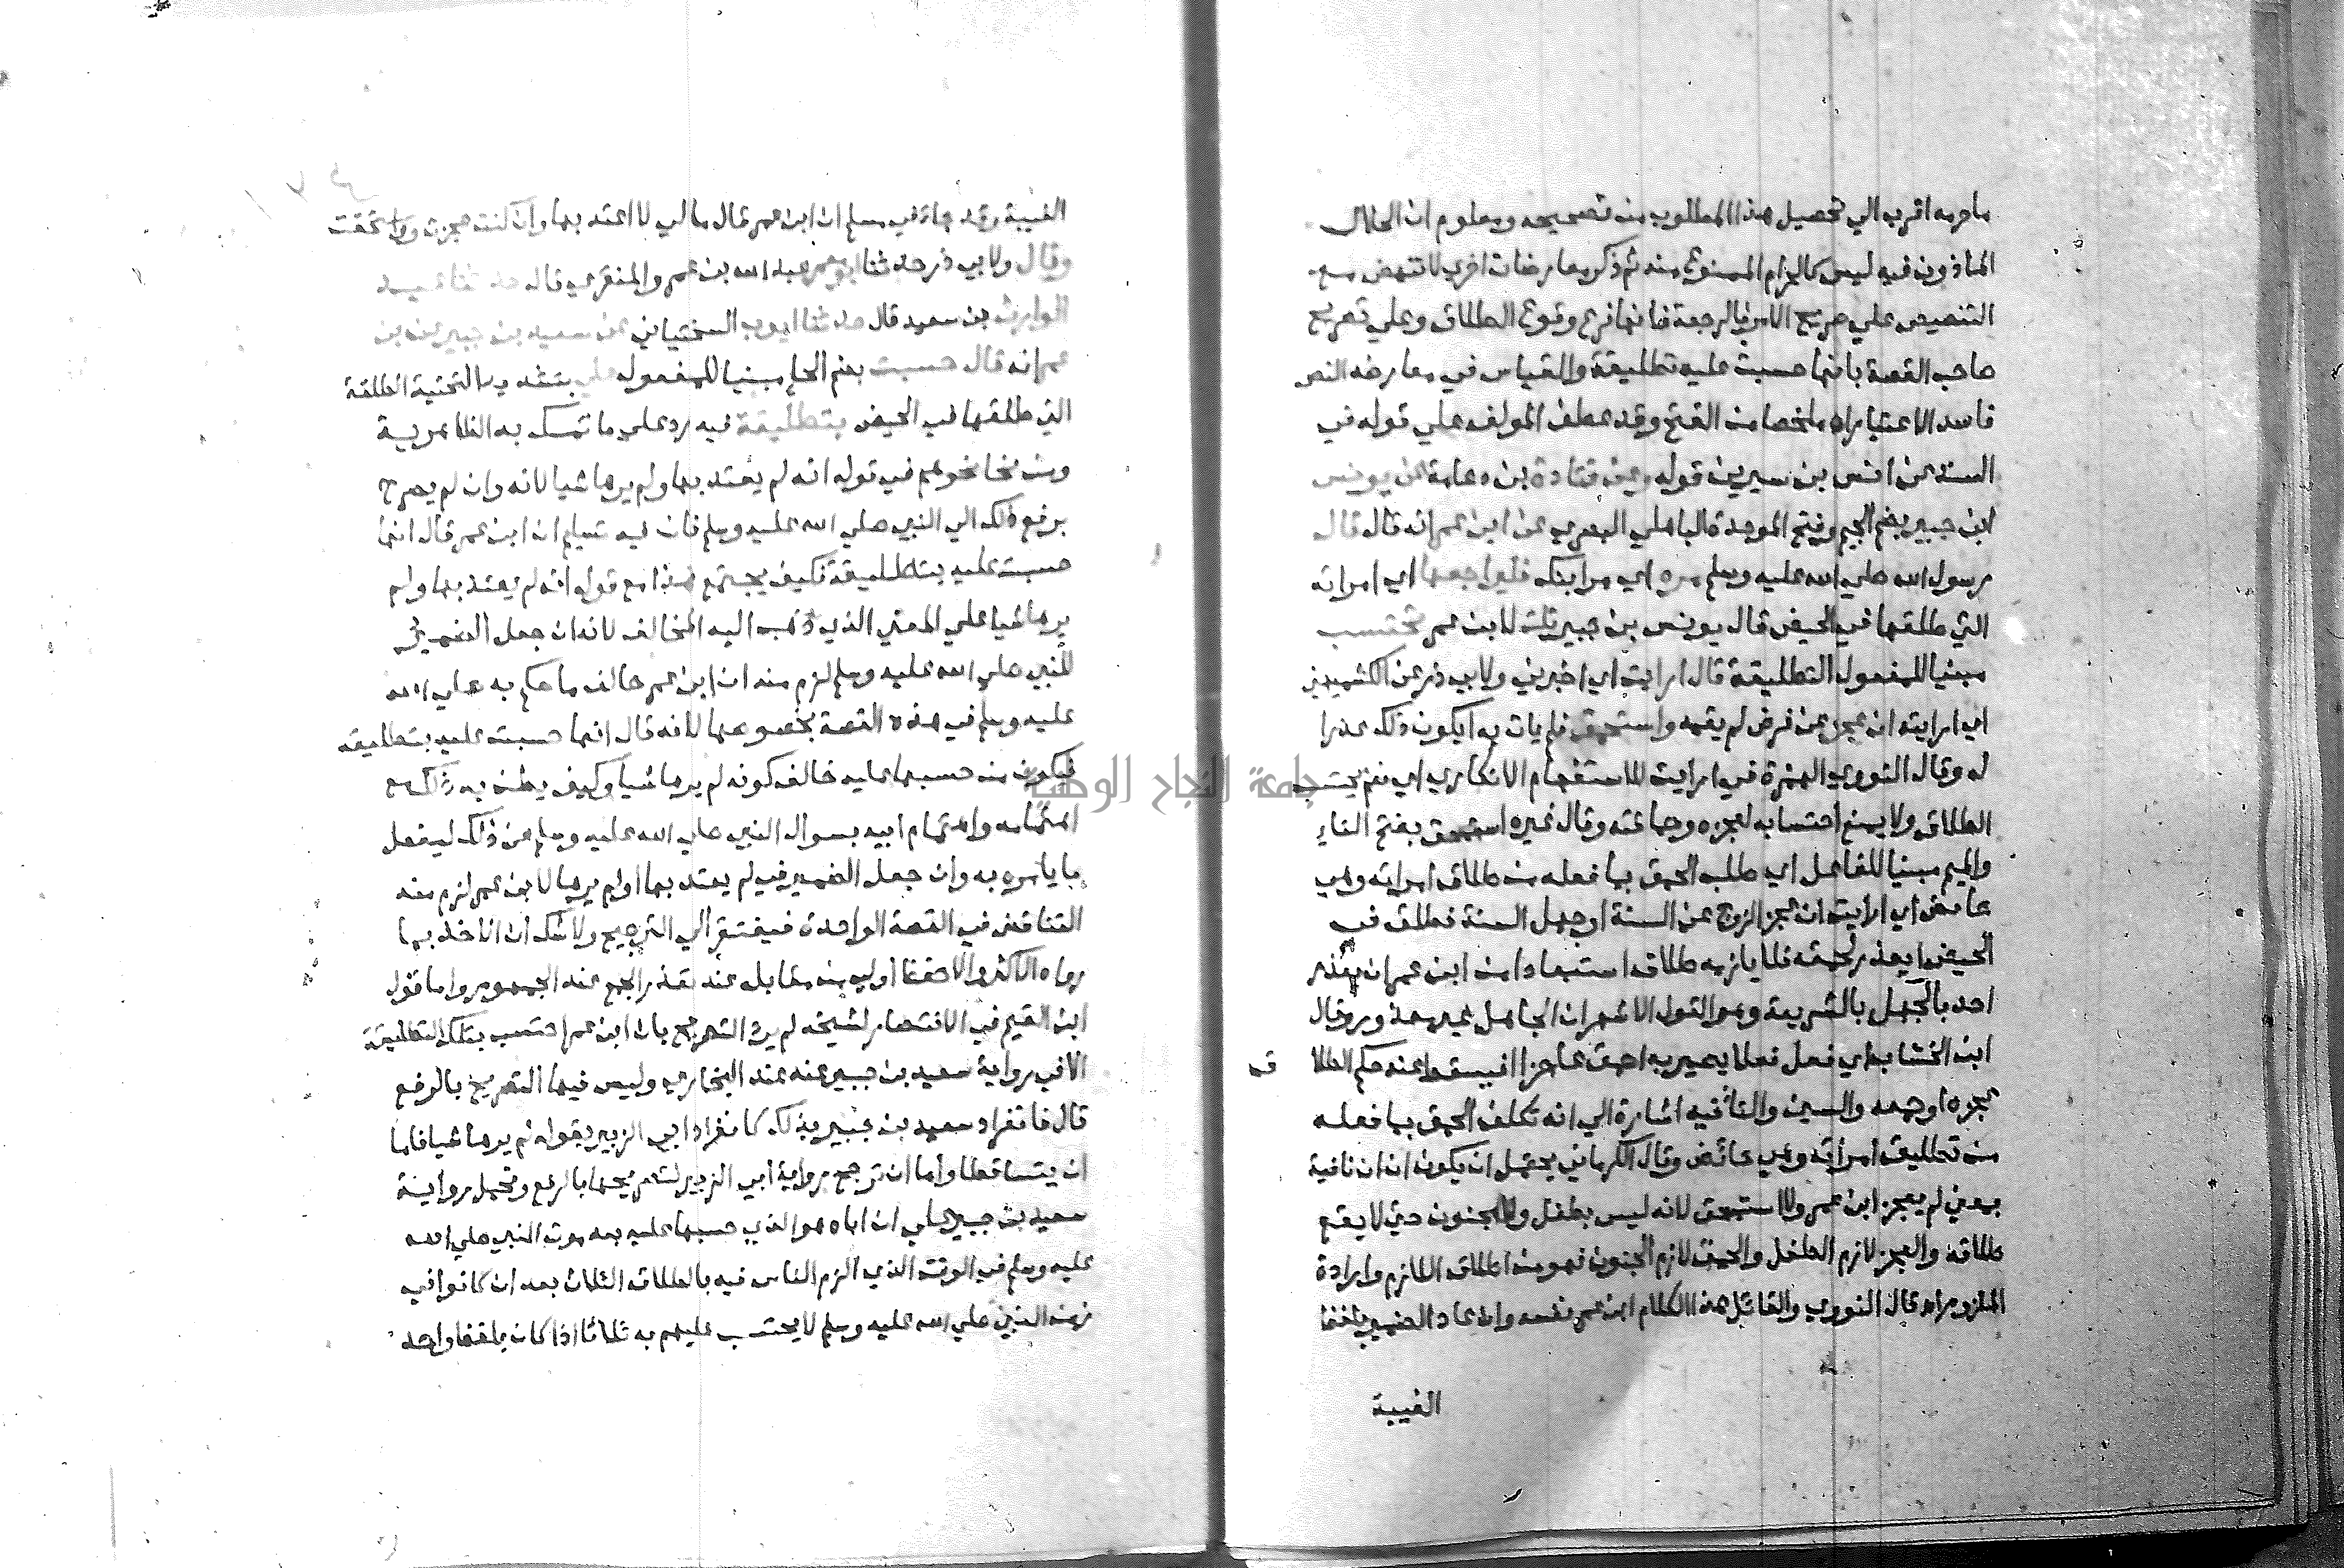 ماحرمه اقرب الي تحصيل هذا المطلوب من تصحيحه ومعلوم ان الحلال
الماذون فيه ليس كالحرام الممنوع منه ثم ذكر معارضات اخري لا تنهض مع
التنصيص علي صريح الامر بالرجعة فانها فرع وقوع الطلاق وعلي تصريح
صاحب القصة بانها حسبت عليه تطليقة والقياس في معارضه النص
فاسد الاعتبار اه ملخصا من الفتح وقد عطف المولف علي قوله في
السند عن انس بن سيرين قوله وعن قتادة بن دعامة عن يونس
ابن جبير بضم الجيم وفتح الموحدة الباهلي البصري عن ابن عمر انه قال قال
رسول الله صلي الله عليه وسلم مره اي مر ابنك فليراجعها اي امراته
التي طلقها في الحيض قال يونس بن جبير قلت لابن عمر تحتسب
مبنيا للمفعول التطليقة قال ارايت اي اخبرني ولابي ذر عن الكشميهني
اي ارايته ان عجز عن فرض لم يقمه واستحمق فلم يات به ايكون ذلك عذرا
له وقال النووي الهمزة في ارايت للاستفهام الانكاري اي نعم يحتسب
الطلاق ولا يمنع احتسابه لعجزه وحماقته وقال غيره استحمق بفتح التاء
والميم مبنيا للفاعل اي طلب الحمق بما فعله من طلاق امراته وهي
حائض اي ارايت ان عجز الزوج عن السنة او جهل السنة فطلق في
الحيض ايعذر لحمقه فلا يلزمه طلاق استبعادا من ابن عمر ان يعذر
احد بالجهل بالشريعة وهو القول الاشهر ان الجاهل غير معذور وقال
ابن الخشاب اي فعل فعلا يصير به احمق عاجزا فيسقط عنه حكم الطلا ق
عجزه او حمقه والسين والتاء فيه اشارة الي انه تكلف الحمق بما فعله
من تطليق امراته وهي حائض وقال الكرماني يحتمل ان يكون ان نافية
بمعني لم يعجز ابن عمر ولا استحمق لانه ليس بطفل ولا مجنون حتي لا يقع
طلاقه والعجز لازم الطفل والحمق لازم الجنون فهو من اطلاق اللازم وارادة
الملزوم اه قال النووي والقائل هذا الكلام ابن عمر نفسه وان عاد الضمير بلفظ
الغيبة
الغيبة وقد جاء في مسلم ان ابن عمر قال مالي لا اعتد بها وان كنت عجزت واستحمقت
وقال ولابي ذر حدثنا ابو معمر عبد الله بن عمرو المنقري قال حدثنا عبد
الوارث بن سعيد قال حدثنا ايوب السختياني عن سعيد بن جبير عن بن
عمر انه قال حسبت بضم الحاء مبنيا للمفعول علي بتشديد التحتية الطلقة
التي طلقها في الحيض بتطليقة فيه رد علي ما تمسك به الظاهرية
ومن نحا نحوهم في قوله انه لم يعتد بها ولم يرها شيا لانه وان لم يصرح
برفع ذلك الي النبي صلي الله عليه وسلم فان فيه تسليم ان ابن عمر قال انها
حسبت عليه بتطليقة فكيف يجتمع هذا مع قوله انه لم يعتد بها ولم
يرها شيا علي المعني الذي ذهب اليه المخالف لانه ان جعل الضمير
للنبي صلي الله عليه وسلم لزم منه ان ابن عمر خالف ما حكم به صلي الله
عليه وسلم في هذه القصة بخصوصها لانه قال انها حسبت عليه بتطليقه
فيكون من حسبها عليه خالف كونه لم يرها شيا وكيف يظن به ذلك مع
اهتمامه واهتمام ابيه بسوال النبي صلي الله عليه وسلم عن ذلك ليفعل
ما يامره به وان جعل الضمير في لم يعتد بها او لم يرها لابن عمر لزم منه
التناقض في القصة الواحدة فيفتقر الي الترجيح ولا شك ان الاخذ بما
رواه الاكثر والاحفظ اولي من مقابله عند تعذر الجمع عند الجمهور واما قول
ابن القيم في الانتصار لشيخه لم يرد التصريح بان ابن عمر احتسب بتلك التطليقة
الا في رواية سعيد بن جبير عنه عند البخاري وليس فيها التصريح بالرفع
قال فانفراد سعيد بن جبير بذلك كانفراد ابي الزبير بقوله لم يرها شيا فاما
ان يتساقطا واما ان ترجح رواية ابي الزبير لتصريحها بالرفع وتحمل رواية
سعيد بن جبير علي ان اباه هو الذي حسبها عليه بعد موت النبي صلي الله
عليه وسلم في الوقت الذي الزم الناس فيه بالطلاق الثلاث بعد ان كانوا في
زمن النبي صلي الله عليه وسلم لا يحتسب عليهم به ثلاثا اذا كان بلفظ واحد
جامعة النجاح الوطنية